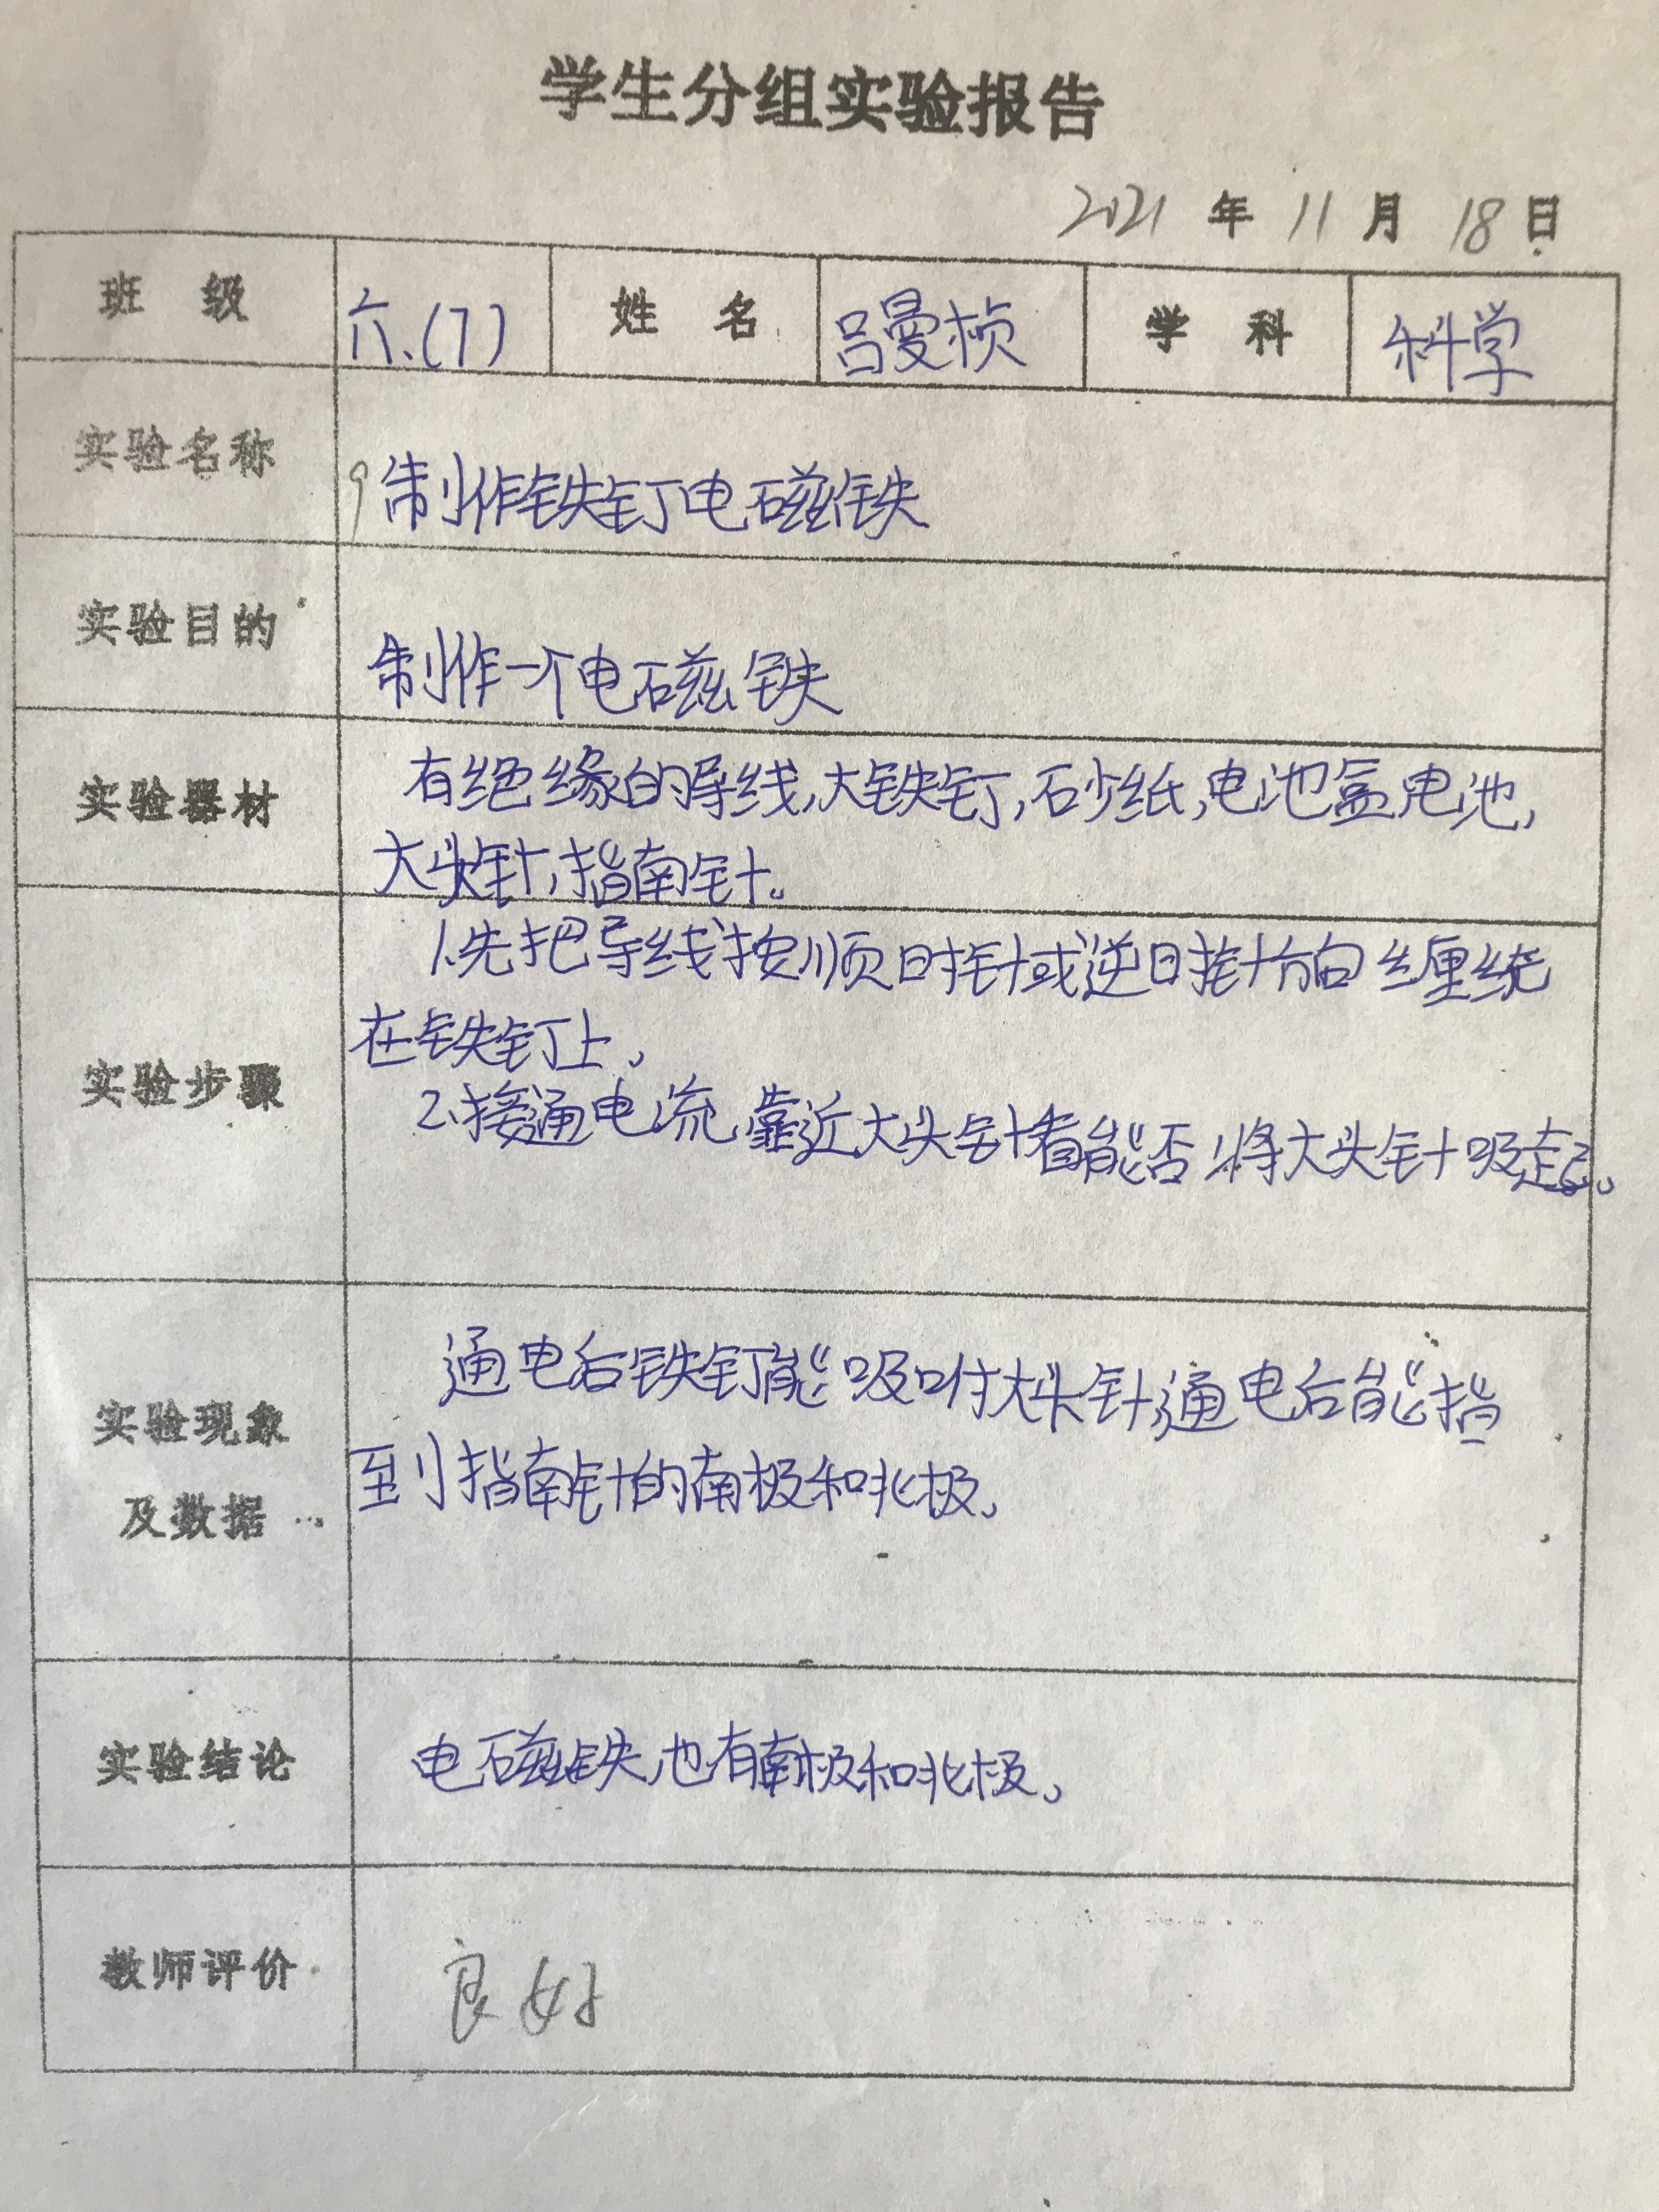 学生分组实验报告
2021 年 11 月 18 日
班 级 六.(7) 姓 名 吕曼桢 学 科 科学
实验名称 9 制作铁钉电磁铁
实验目的 制作一个电磁铁
实验器材 有绝缘的导线,大铁钉,砂纸,电池盒,电池,
大头针,指南针。
1.先把导线按顺时针或逆时针方向缠绕
在铁钉上。
实验步骤
2.接通电流,靠近大头针看能否将大头针吸起。
通电后铁钉能吸附大头针,通电后能指
实验现象
到指南针的南极和北极。
及数据
实验结论 电磁铁也有南极和北极。
教师评价 良好